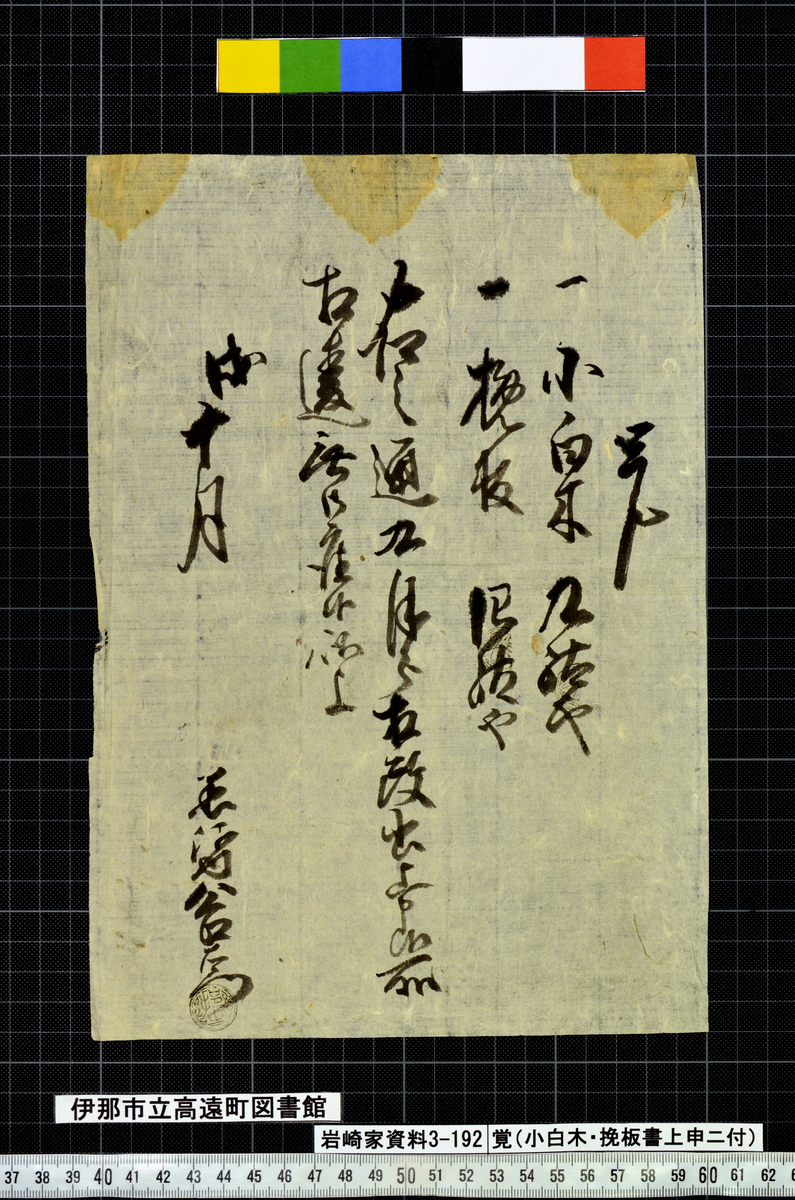 覚
一 小白木 九駄也
一 挽板 四駄也
右之通九月分相改書上申候所
相違無御座候以上
戌十月
伊那市立高遠町図書館
岩崎家資料3-192 覚(小白木・挽板書上申ニ付)
37 38 39 40 41 42 43 44 45 46 47 48 49 50 51 52 53 54 55 56 57 58 59 60 61 62